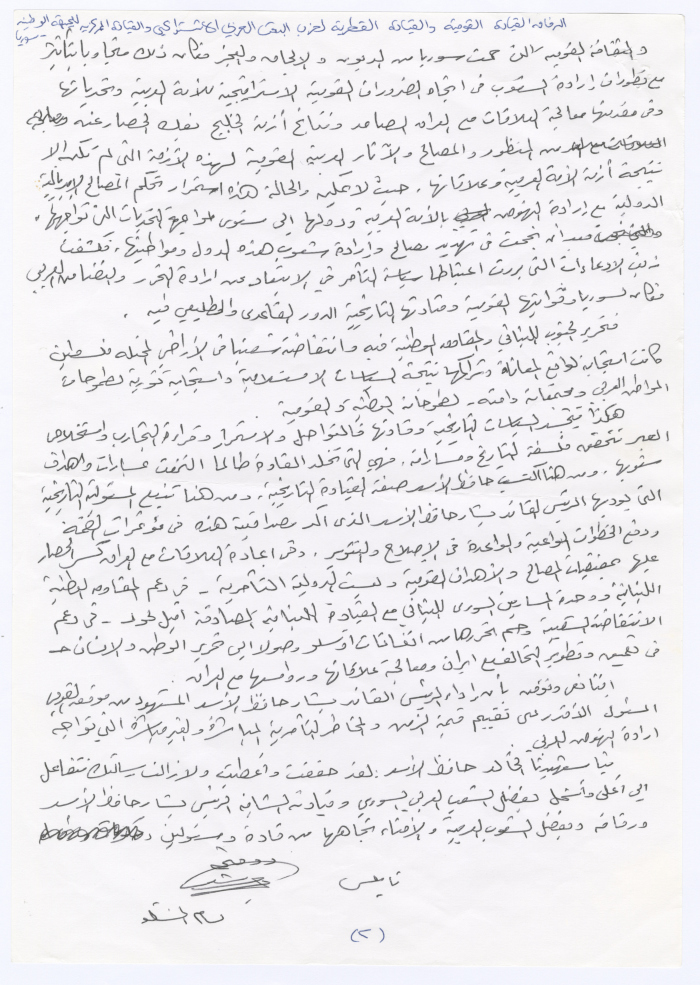 الرفاق القيادة القومية والقيادة القطرية لحزب البعث العربي الاشتراكي والقيادة المركزية للجبهة الوطنية سوريا
والثقافة القومية التي حمت سوريا من الديون و والعجز فكان ذلك متجاوبا
مع تطورات إرادة الشعوب في اتجاه الضرورات القومية الاستراتيجية للأمة العربية وتحدياتها
وفي مقدمتها معالجة العلاقات مع العراق الصامد ونتائج أزمة الخليج بفك الحصار عنه
من المنظور والمصالح والآثار العربية القومية لهذه الأزمة التي لم تكن إلا
نتيجة أزمة الأمة العربية وعلاقاتها. حيث لا يمكن والحالة هذه استمرار تحكم المصالح الامبريالية
الدولية مع إرادة النهوض بالأمة العربية ودولها إلى مستوى مواجهة التحديات التي تواجهها.
بعد أن نجحت في تهديد مصالح وإرادة شعوب هذه الدول ومواطنيها، فكشفت
زيف الادعاءات التي بررت سياسة التآمر في الابتعاد عن إرادة التحرر والتضامن العربي
فكان لسوريا القومية وقيادتها التاريخية الدور القاعدي والطليعي فيه .
فتحرير الجنوب اللبناني والمقاومة الوطنية فيه وانتفاضة شعبنا في الأراضي المحتلة فلسطين
كانت استجابة لواقع المعاناة وتراكمها نتيجة السياسات الاستسلامية واستجابة ثورية لطموحات
المواطن العربي ومجتمعاته وأمته. لطموحاته الوطنية والقومية
هكذا تتجسد السياسات التاريخية وقادتها فالتواصل والاستمرار وقراءة التجارب واستخلاص
العبر تتحقق فلسفة التاريخ ومساراته. فهي التي تخلد القادة طالما التقت مسارات وأهداف
شعوبها. ومن هنا اكتسب حافظ الأسد صفة القيادة التاريخية. ومن هنا تنبع المسئولية التاريخية
التي يؤديها الرئيس القائد بشار حافظ الأسد الذي أكد مصداقية هذه في مؤتمرات القمة
ودفع الخطوات الواعية والواعدة في الإصلاح والتنوير. وفي إعادة العلاقات مع العراق كسر الحصار
عليها بمقتضيات المصالح والأهداف القومية وليست الدولية التآمرية - في دعم المقاومة الوطنية
اللبنانية ووحدة المسارين السوري اللبناني مع القيادة اللبنانية الصادقة أميل لحود - في دعم
الانتفاضة الشعبية وحم تحررها من اتفاقات أوسلو وصولا إلى تحرير الوطن والإنسان -
في تعميق وتطوير التحالف مع إيران ومعالجة علاقاتها مع العراق.
إننا نعي ونؤمن بأن أداء الرئيس القائد بشار حافظ الأسد المشهود من موقعه القومي
المسئول الأقدر على تقييم قيمة الزمن والمخاطر التآمرية المباشرة والغير مباشرة التي تواجه
إرادة النهوض العربي.
الخالد حافظ الأسد: لقد حققت وأعطيت ولا زالت رسالتك تتفاعل
إلى أعلى وأشمل بفضل الشعب العربي السوري وقيادته الشابة الرئيس بشار حافظ الأسد
ورفاقه وبفضل الشعوب العربية والأوفياء تجاهها من قادة ومسئولين
نابلس
(٢)